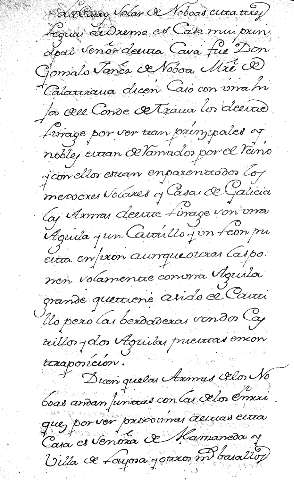 Solar de Noboas esta tres
leguas de Orense, es Casa muy prin
cipal Señor de esta Casa fue Don
Gonzalo Yanez de Noboa Mre. de
Calatraua dicen Casó con vna hi
ja del Conde de Traua los de este
linage por ser tan principales y
nobles estan deRamados por el Reino
y con ellos estan enparentados los
mejores solares y Casas de Galicia
las Armas de este linage son vna
Aguila y un Castillo y un Leon pu
esta en aunque otros las po
nen solamente con vna Aguila
grande que tiene asido el Casti
llo pero las berdaderas son dos Cas
tillos y dos Aguilas puestas en con
traposicion.
Dicen que las Armas de los No
boas andan juntas con las de los Enrri
quez por ser
Casa es Señora de Maceda y
Villa de y otros mil basallos